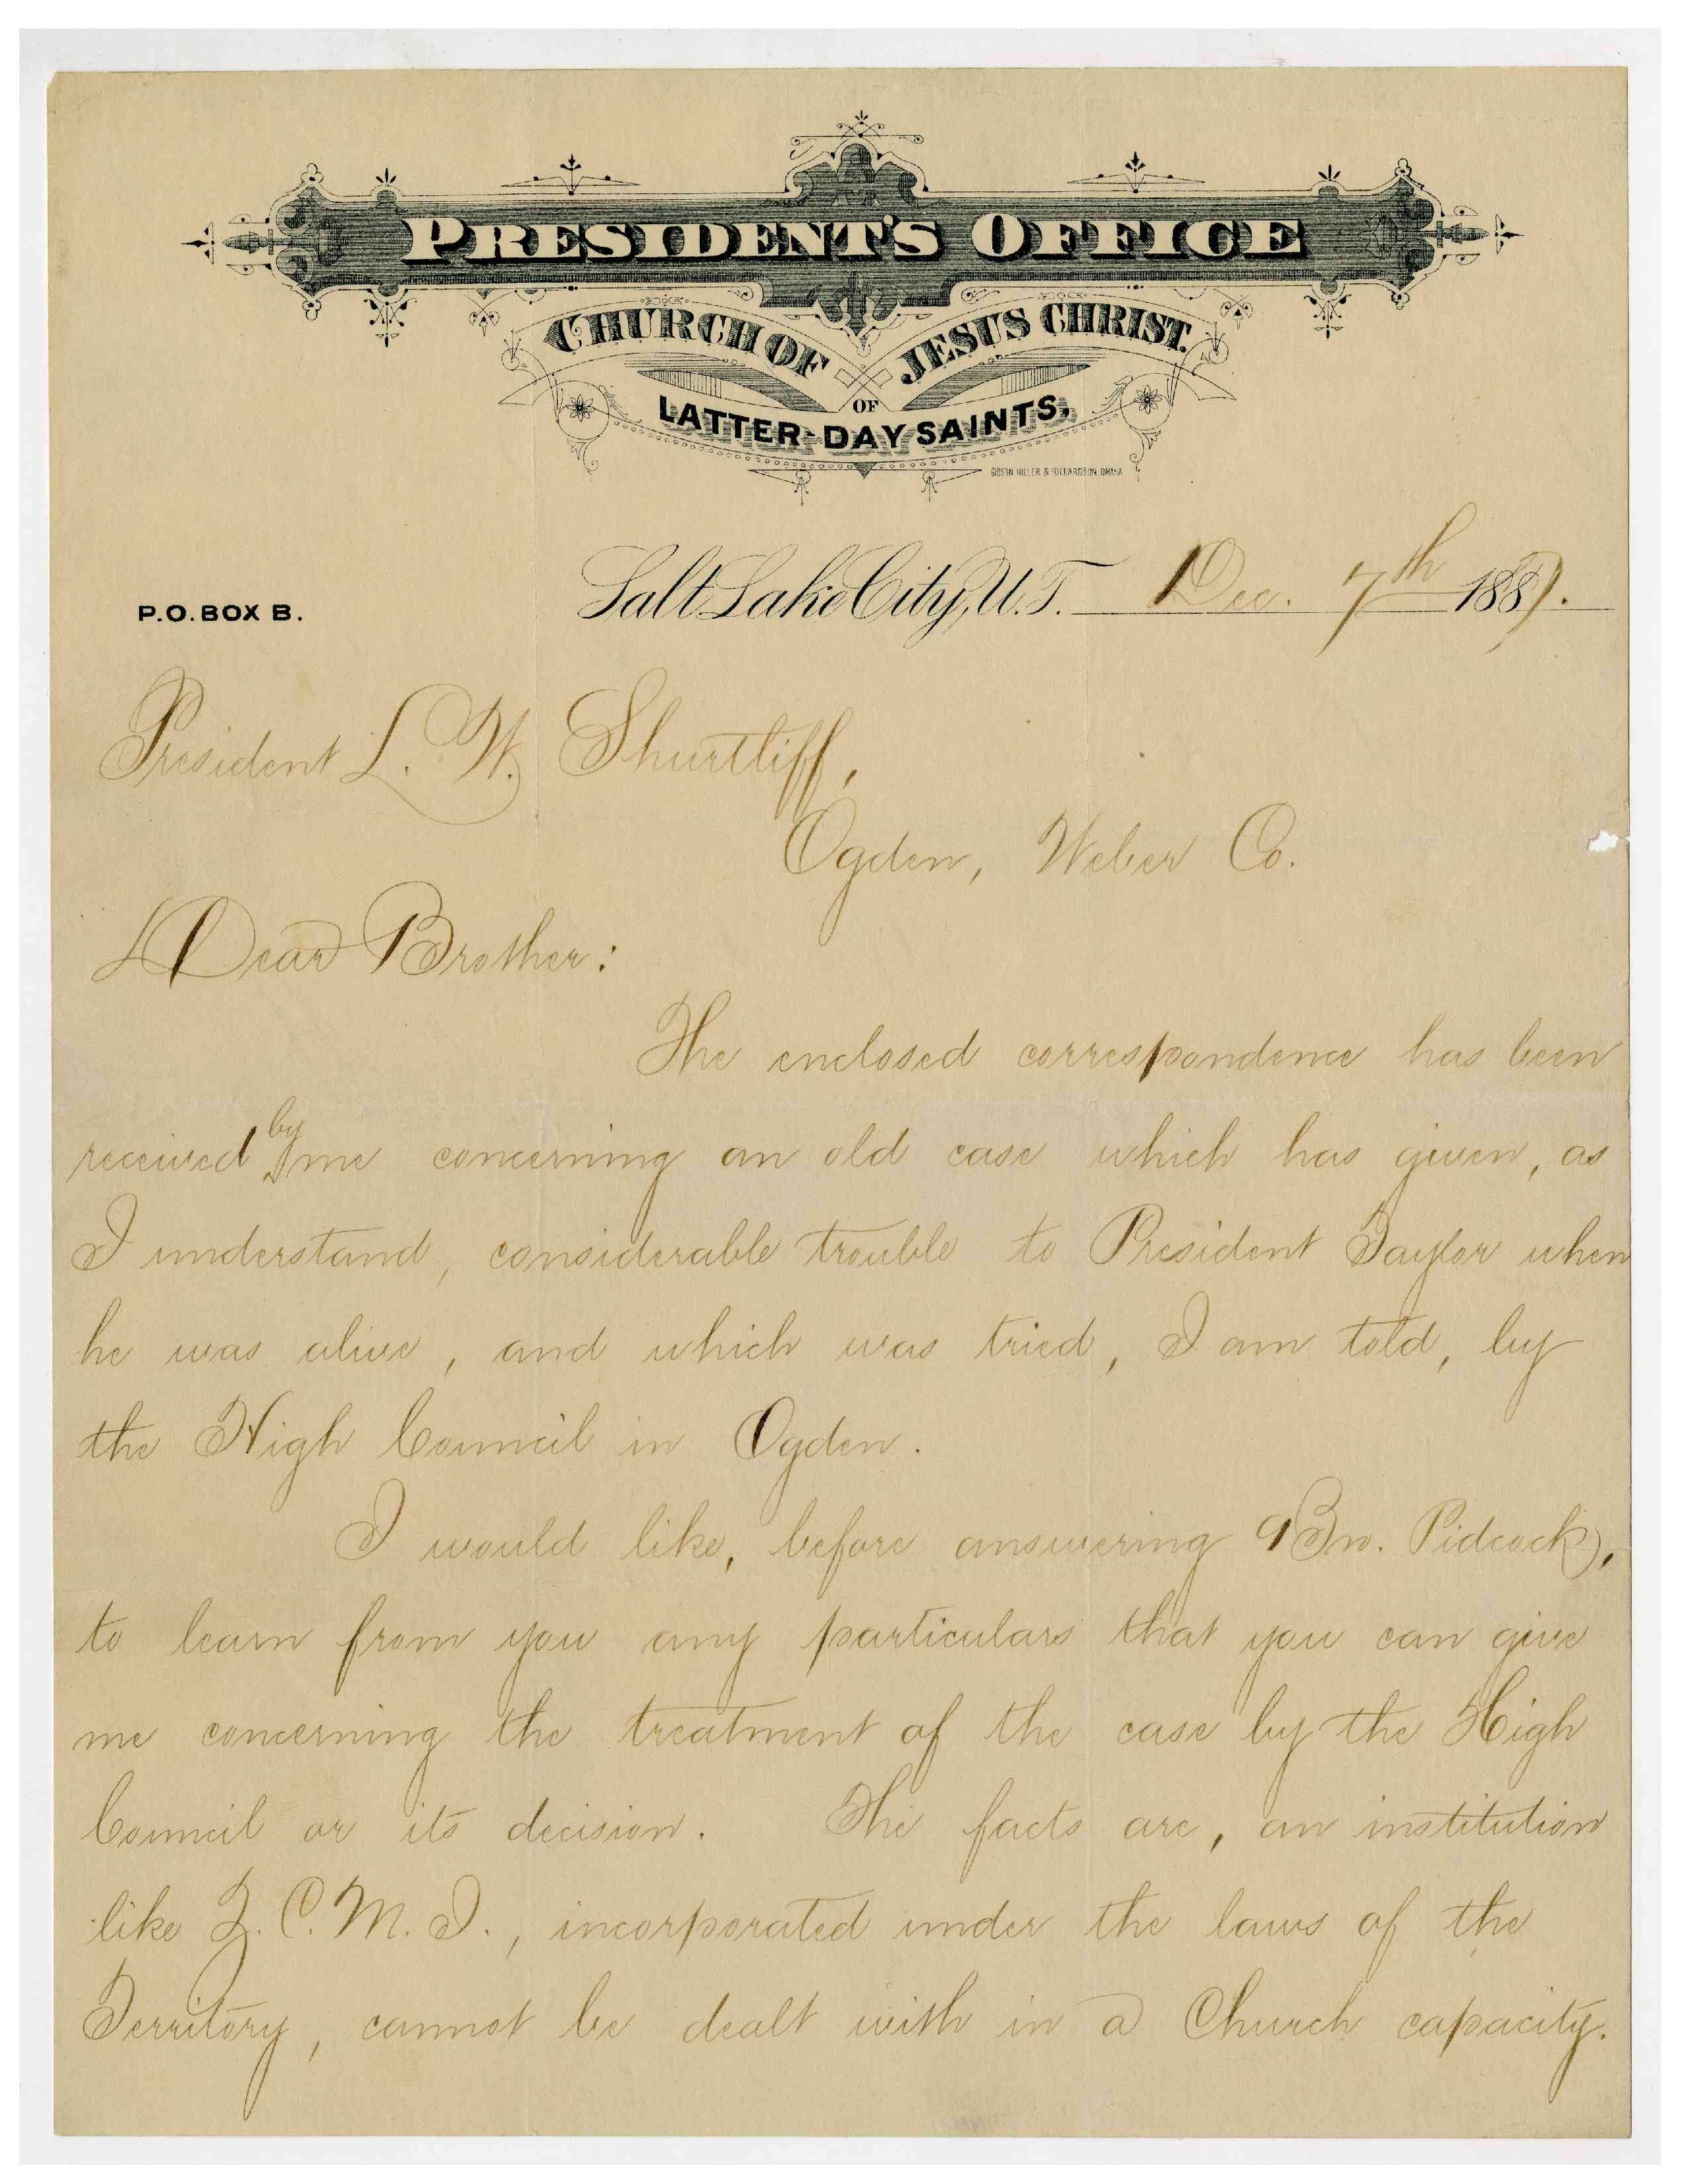 PRESIDENT'S OFFICE
CHURCH OF JESUS CHRIST
OF
LATTER-DAY SAINTS,
GIBSON MILLER & RICHARDSON, OMAHA
P.O. BOX B.
Salt Lake City, U.T. Dec. 7th 1887.
President L. W. Shurtliff,
Ogden, Weber Co.
Dear Brother:
The enclosed correspondence has been
received by me concerning an old case which has given, as
I understand, considerable trouble to President Taylor when
he was alive, and which was tried, I am told, by
the High Council in Ogden.
I would like, before answering Bro. Pidcock,
to learn from you any particulars that you can give
me concerning the treatment of the case by the High
Council or its decision. The facts are, an institution
like Z. C. M. I., incorporated under the laws of the
Territory, cannot be dealt with in a Church capacity.